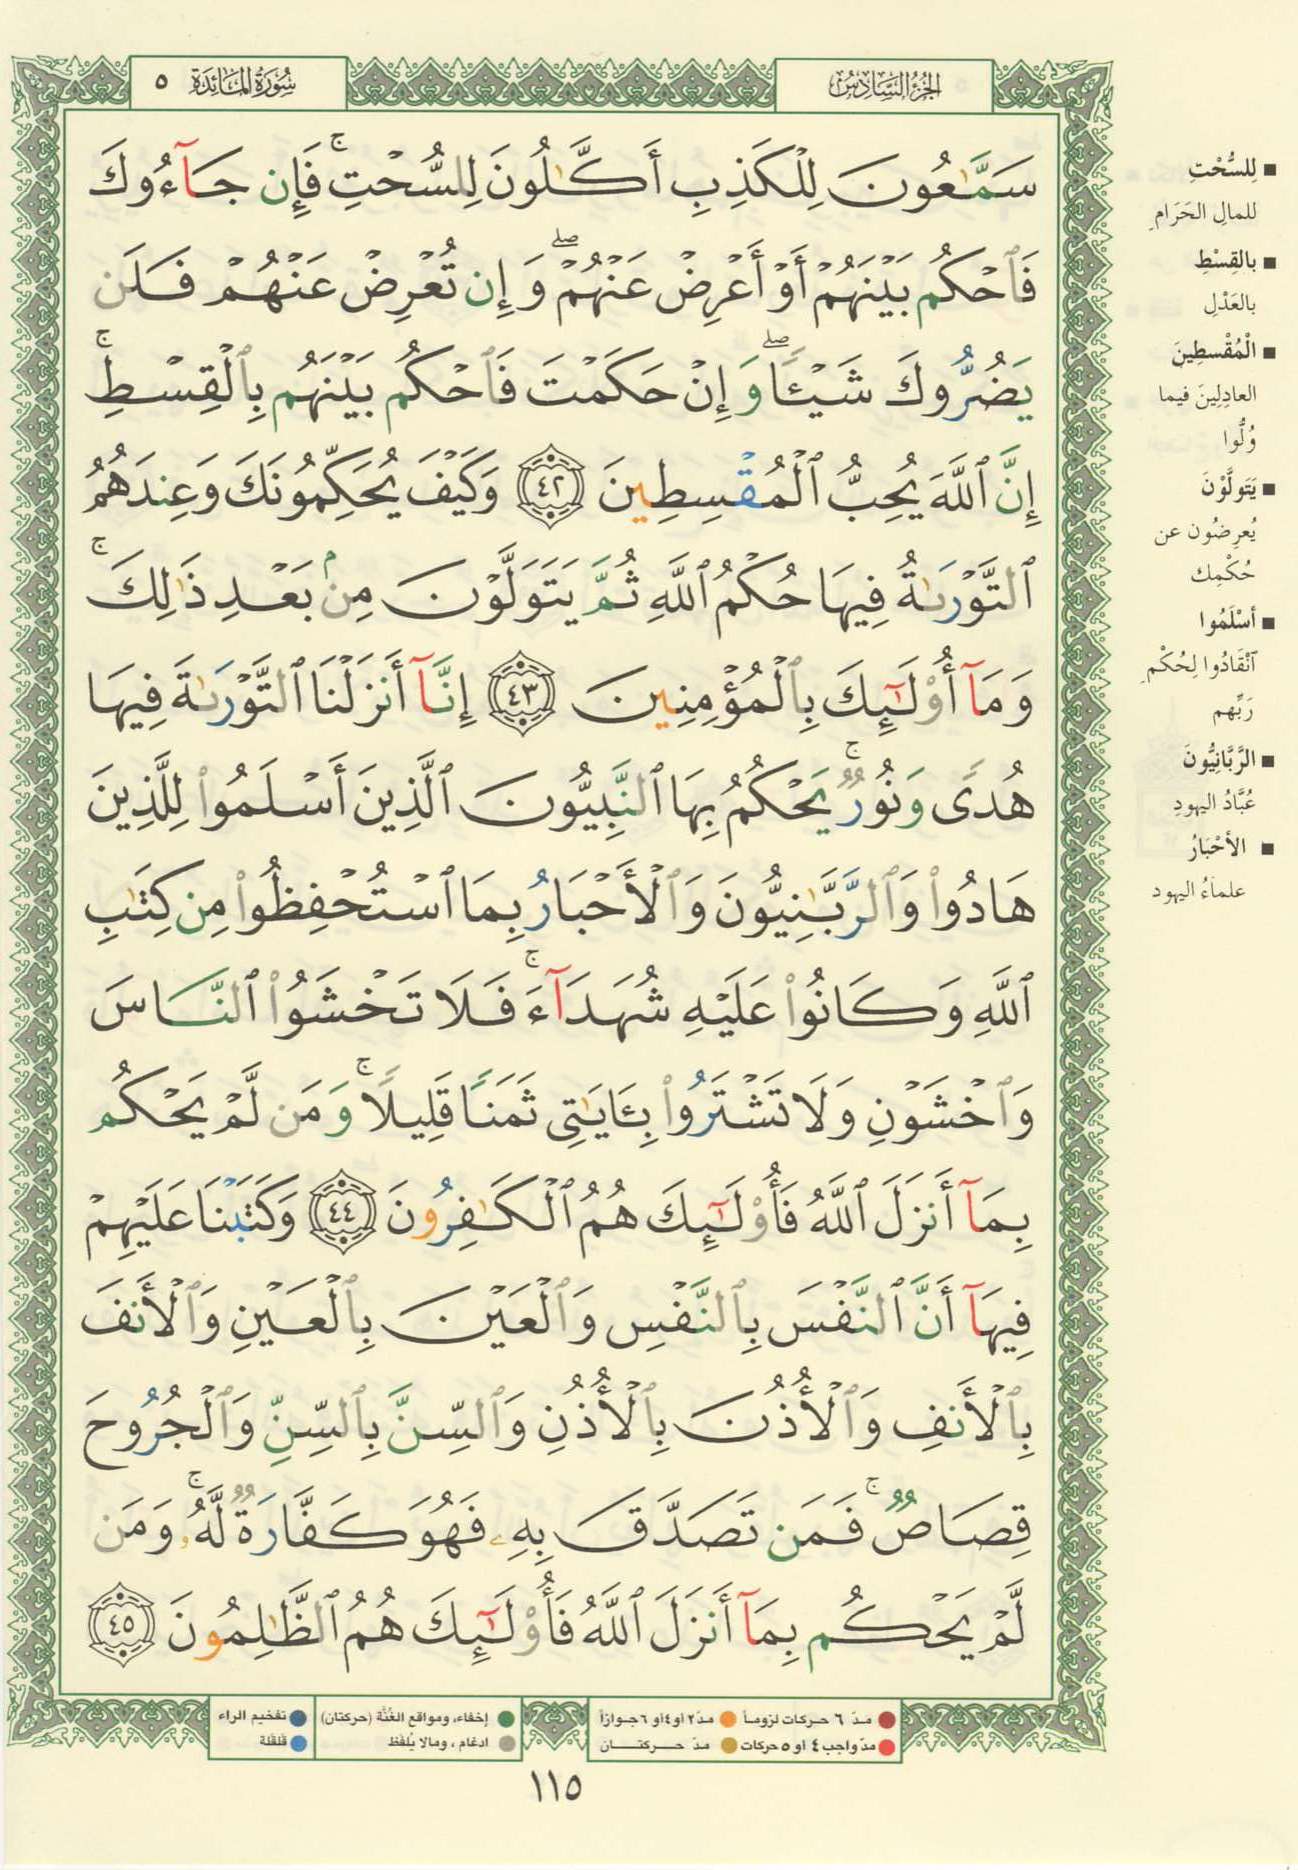 سُورَةُ المَائدَة ٥
الجُزْءُ السَّادِسُ
سَمَّٰعُونَ لِلْكَذِبِ أَكَّٰلُونَ لِلسُّحْتِ ۚ فَإِن جَآءُوكَ
فَٱحْكُم بَيْنَهُمْ أَوْ أَعْرِضْ عَنْهُمْ ۖ وَإِن تُعْرِضْ عَنْهُمْ فَلَن
يَضُرُّوكَ شَيْـًٔا ۖ وَإِنْ حَكَمْتَ فَٱحْكُم بَيْنَهُم بِٱلْقِسْطِ ۚ
إِنَّ ٱللَّهَ يُحِبُّ ٱلْمُقْسِطِينَ ٤٢ وَكَيْفَ يُحَكِّمُونَكَ وَعِندَهُمُ
ٱلتَّوْرَىٰةُ فِيهَا حُكْمُ ٱللَّهِ ثُمَّ يَتَوَلَّوْنَ مِنۢ بَعْدِ ذَٰلِكَ ۚ
وَمَآ أُو۟لَٰٓئِكَ بِٱلْمُؤْمِنِينَ ٤٣ إِنَّآ أَنزَلْنَا ٱلتَّوْرَىٰةَ فِيهَا
هُدًى وَنُورٌ ۚ يَحْكُمُ بِهَا ٱلنَّبِيُّونَ ٱلَّذِينَ أَسْلَمُوا۟ لِلَّذِينَ
هَادُوا۟ وَٱلرَّبَّٰنِيُّونَ وَٱلْأَحْبَارُ بِمَا ٱسْتُحْفِظُوا۟ مِن كِتَٰبِ
ٱللَّهِ وَكَانُوا۟ عَلَيْهِ شُهَدَآءَ ۚ فَلَا تَخْشَوُا۟ ٱلنَّاسَ
وَٱخْشَوْنِ وَلَا تَشْتَرُوا۟ بِـَٔايَٰتِى ثَمَنًا قَلِيلًا ۚ وَمَن لَّمْ يَحْكُم
بِمَآ أَنزَلَ ٱللَّهُ فَأُو۟لَٰٓئِكَ هُمُ ٱلْكَٰفِرُونَ ٤٤ وَكَتَبْنَا عَلَيْهِمْ
فِيهَآ أَنَّ ٱلنَّفْسَ بِٱلنَّفْسِ وَٱلْعَيْنَ بِٱلْعَيْنِ وَٱلْأَنفَ
بِٱلْأَنفِ وَٱلْأُذُنَ بِٱلْأُذُنِ وَٱلسِّنَّ بِٱلسِّنِّ وَٱلْجُرُوحَ
قِصَاصٌ ۚ فَمَن تَصَدَّقَ بِهِۦ فَهُوَ كَفَّارَةٌ لَّهُۥ ۚ وَمَن
لَّمْ يَحْكُم بِمَآ أَنزَلَ ٱللَّهُ فَأُو۟لَٰٓئِكَ هُمُ ٱلظَّٰلِمُونَ ٤٥
■ لِلسُّحْتِ
للمالِ الحَرَامِ
■ بالقِسْطِ
بالعَدْلِ
■ الْمُقْسِطِينَ
العادِلِينَ فيما
وُلُّوا
■ يَتَولَّوْنَ
يُعرِضُون عن
حُكْمِك
■ أسْلَمُوا
آنْقَادُوا لِحُكْمِ
رَبِّهم
■ الرَّبَّانِيُّونَ
عُبَّادُ اليهودِ
■ الأحْبَارُ
علماءُ اليهود
مدّ ٦ حركات لزوماً ● مدّ ٢ أو ٤ أو ٦ جوازاً ● إخفاء، ومواقع الغُنَّة (حركتان) ● تفخيم الراء
مدّ واجب ٤ أو ٥ حركات ● مدّ حركتان ● ادغام، ومالا يُلفَظ ● قلقلة
١١٥